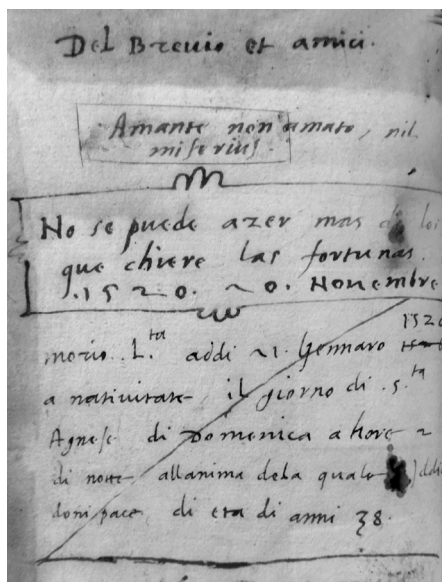 Del Brevio et amici.
Amante non amato, nil
miserius.
No se puede azer mas di lo
que chiere las fortunas.
.1520. 20. Novembre
1520
morio .L.ta addi 21. Gennaro
a nativitate, il giorno di .S.ta
Agnese di Domenica a hore 2
di notte allanima dela quale Iddi
doni pace, di eta di anni 38.